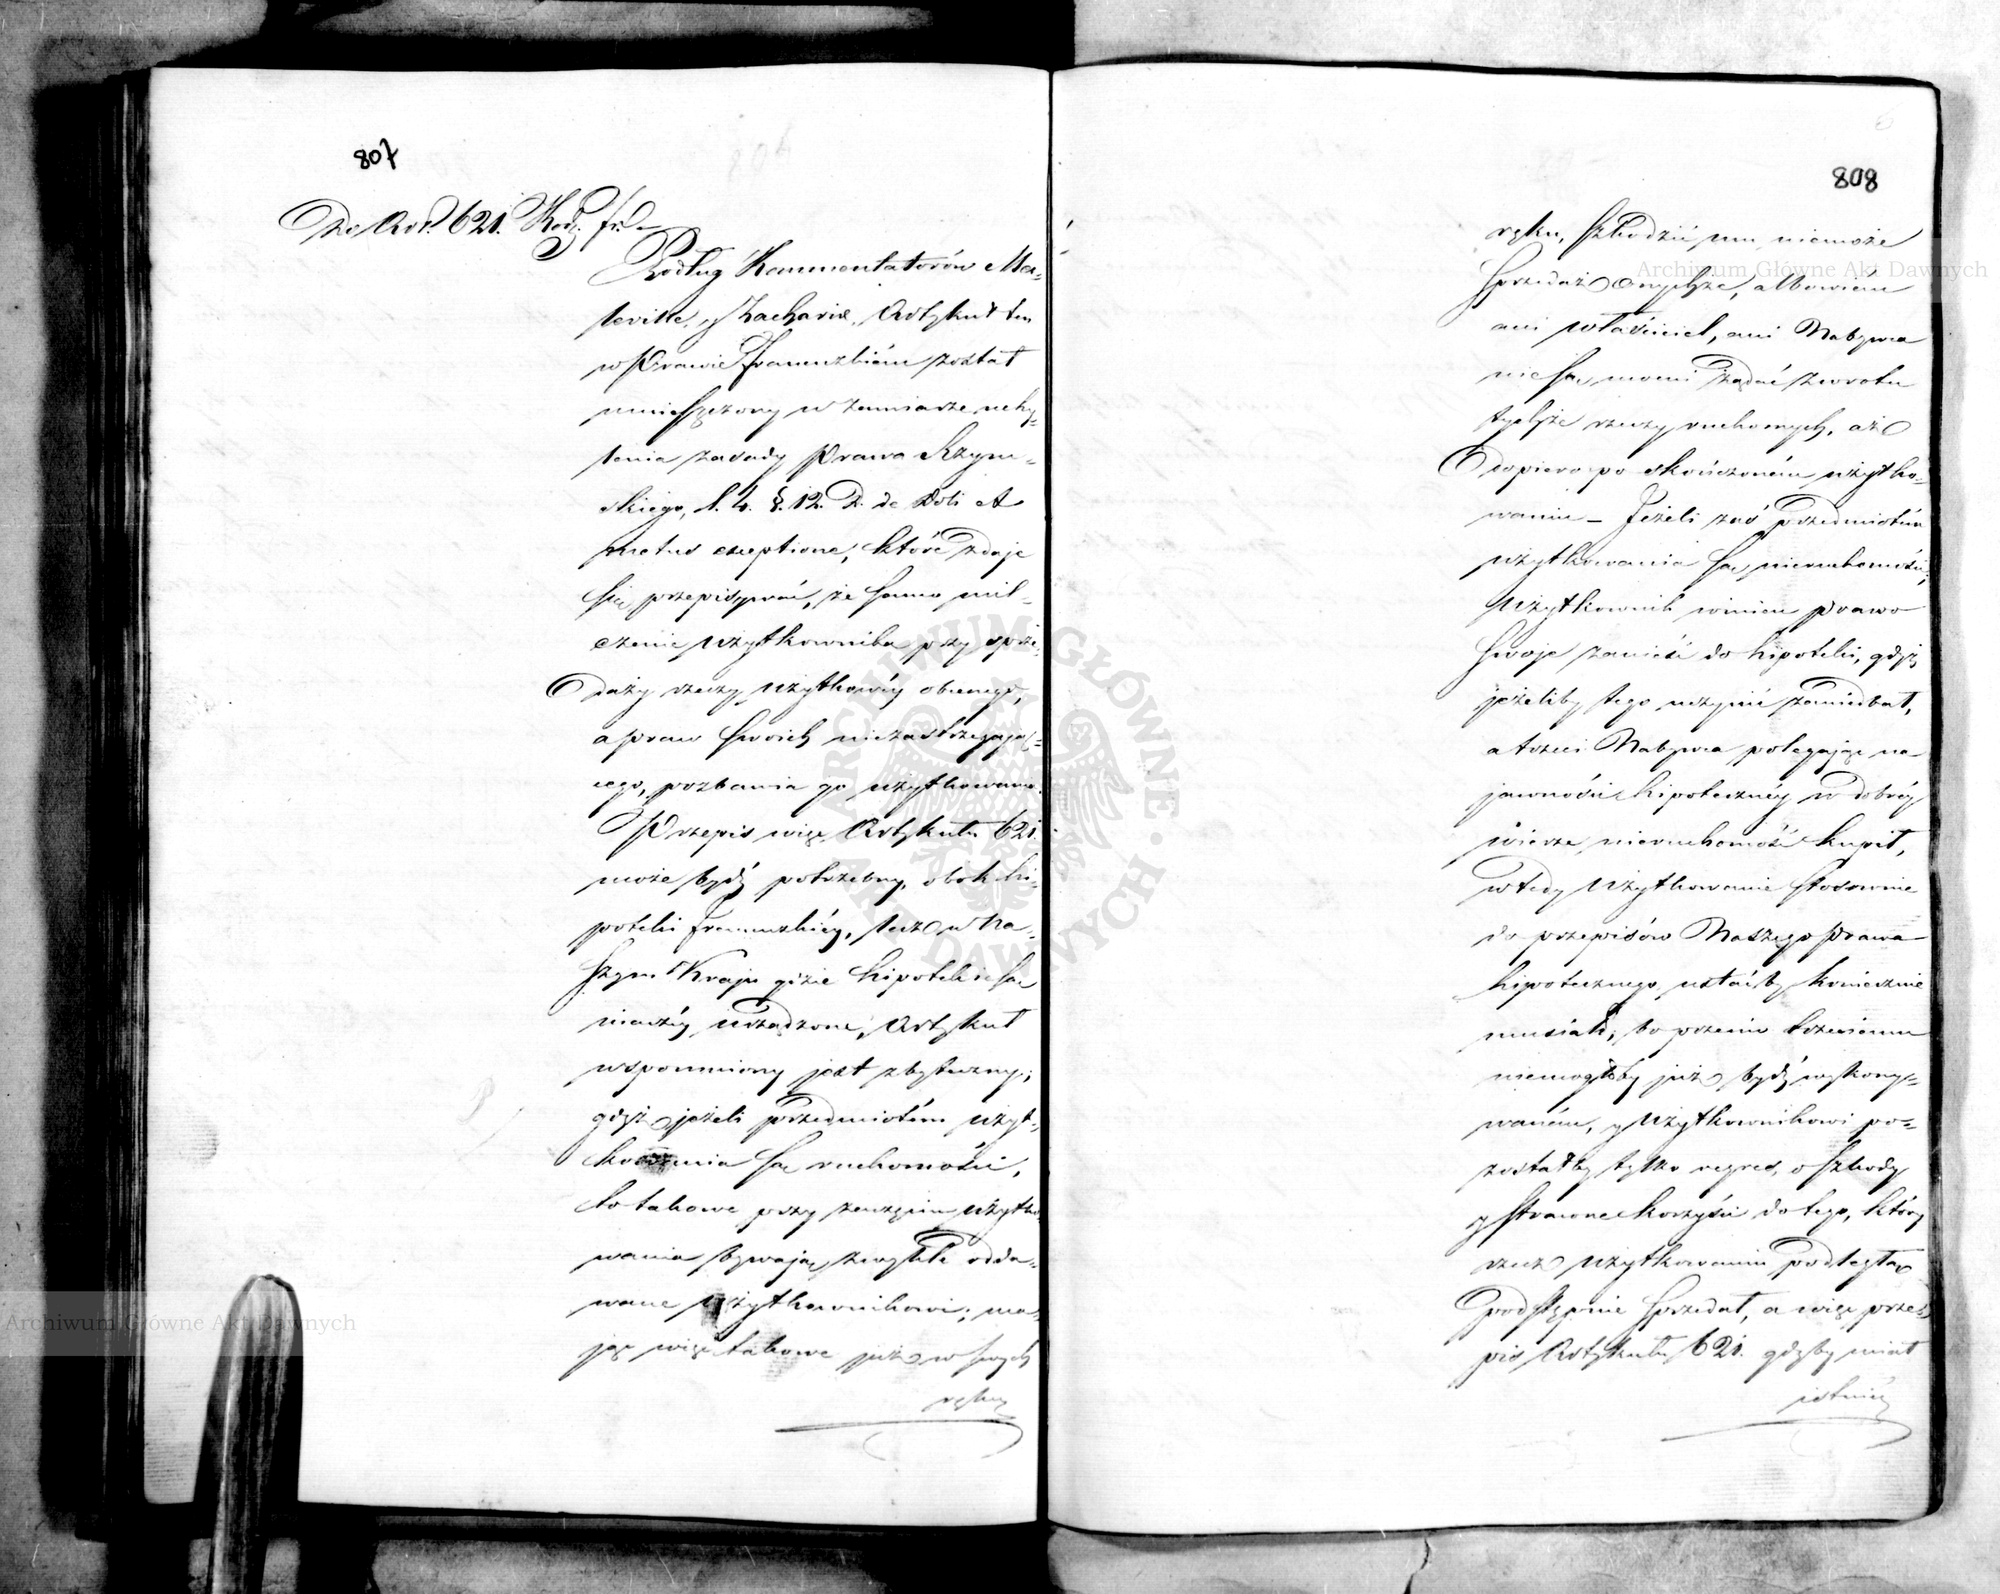 807
Do Art. 621. Kod. fr.
Podług Kommentatorów Ma-
leville, y Zachariæ, Artykuł ten
w Prawie francuzkiém został
umieszczony w zamiarze uchy-
lenia zasady Prawa Rzym-
skiego, l. 4. §. 12. D. de Doli et
metus exceptione, które zdaje
się przepisywać, że samo mil-
czenie użytkownika przy sprze-
daży rzeczy użytkowéy obecnego,
a praw swoich niezastrzegają-
cego, pozbawia go użytkowania.
Przepis więc Artykułu 621.
może bydź potrzebny, obok hi-
poteki francuzkiéy, lecz w Na-
szym Kraju gdzie hipoteki są
inaczéy urządzone, Artykuł
wspomniony jest zbyteczny;
gdyż jeżeli przedmiotém użyt-
kowania są ruchomości,
to takowe przy zaczęciu użytko-
wania bywają zwykle odda-
wane użytkownikowi; ma-
jąc więc takowe już w swych
ręku
808
ręku, szkodzić mu niemoże
sprzedaż onychże, albowiem
ani właściciel, ani Nabywca
nie są w mocni żądać zwrotu
tychże rzeczy ruchomych, aż
dopiero po skończoném użytko-
waniu – Jeżeli zaś przedmiotém
użytkowania są nieruchomości,
użytkownik winien prawo
swoje zanieść do hipoteki, gdyż
jeżeliby tego uczynić zaniedbał,
a trzeci Nabywca polegając na
jawności hipotecznéy w dobréy
wierze nieruchomość kupił,
wtedy użytkowanie stosownie
do przepisów Naszego prawa
hipotecznego ustać by koniecznie
musiało, bo przeciw trzeciemu
niemogłoby już bydź wykony-
waném, y użytkownikowi po-
zostałby tylko regres, o szkody
y stracone korzyści do tego, który
rzecz użytkowaniu podległą
podstępnie sprzedał, a więc prze-
pis Artykułu 621. gdyby miał
istnieć
Archiwum Główne Akt Dawnych
Archiwum Główne Akt Dawnych
ARCHIWUM GŁÓWNE AKT DAWNYCH